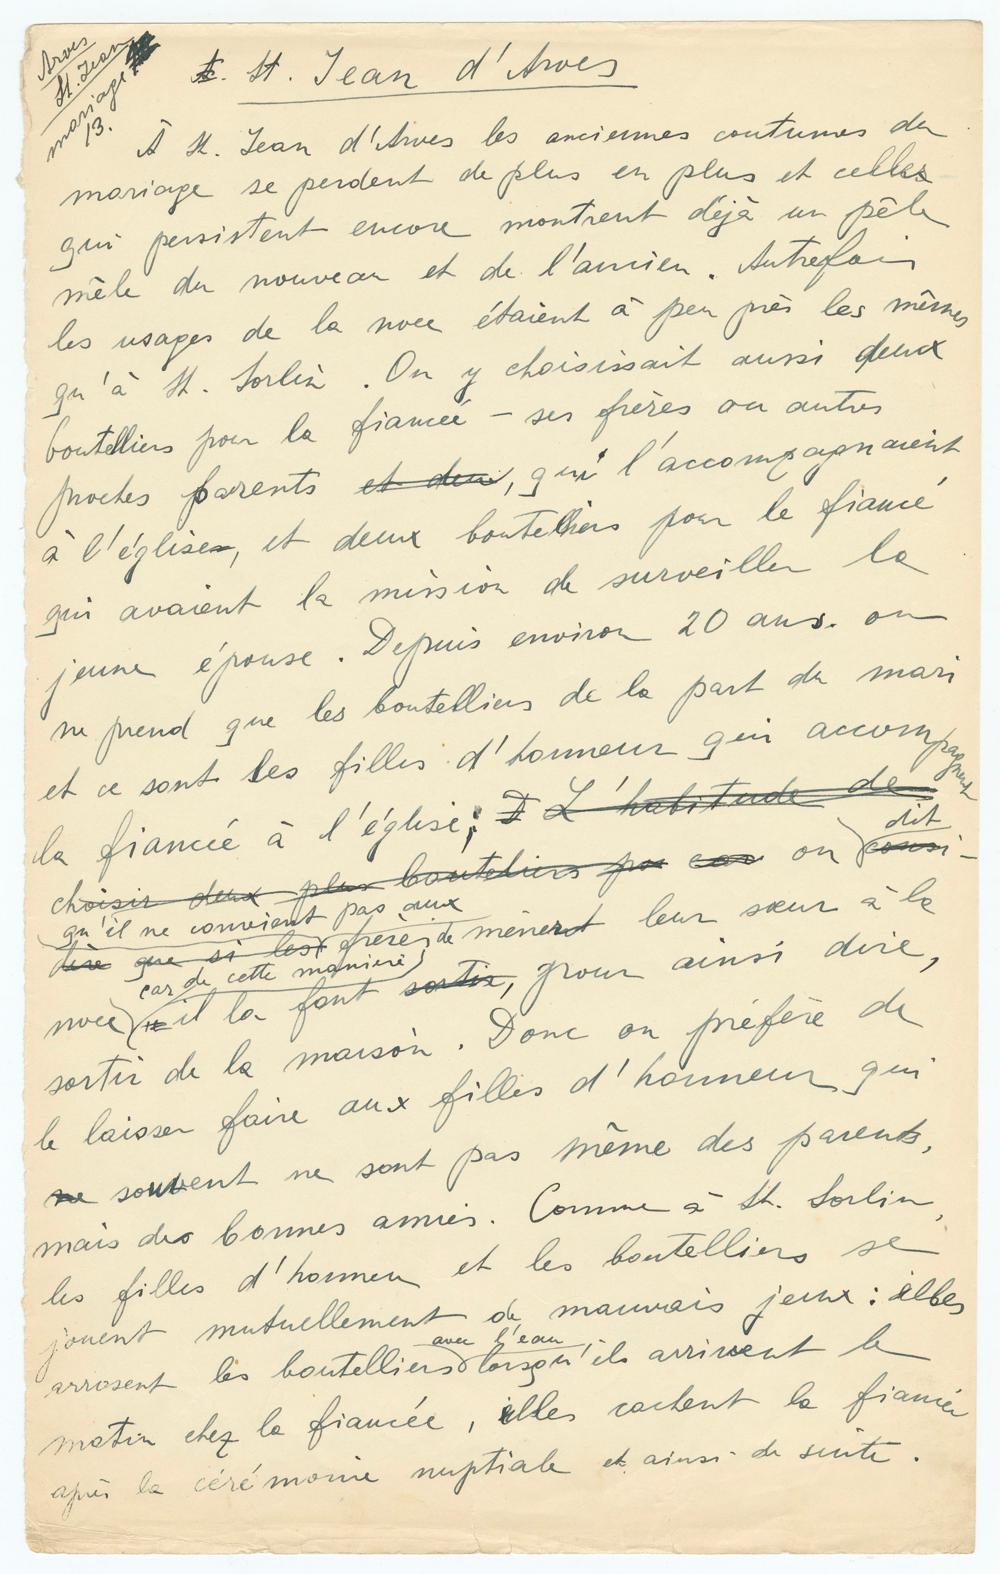 Arves
St. Jean
mariage
13.
St. Jean d'Arves
À St. Jean d'Arves les anciennes coutumes du
mariage se perdent de plus en plus et celles
qui persistent encore montrent déjà un pêle
mêle du nouveau et de l'ancien. Autrefois
les usages de la noce étaient à peu près les mêmes
qu'à St. Sorlin. On y choisissait aussi deux
boutelliers pour la fiancée – ses frères ou autres
proches parents et deux, qui l'accompagnaient
à l'église, et deux boutelliers pour le fiancé
qui avaient la mission de surveiller la
jeune épouse. Depuis environ 20 ans. on
ne prend que les boutelliers de la part du mari
et ce sont les filles d'honneur qui accompagnent
la fiancée à l'église; L'habitude de
dit
choisir deux plus bouteliers po car on consi-
qu'il ne convient pas aux
dère que si les frères de mènent leur sœur à la
car de cette manière
noce il la font sortir, pour ainsi dire,
sortir de la maison. Donc on préfère de
le laisser faire aux filles d'honneur qui
ne souvent ne sont pas même des parents,
mais des bonnes amies. Comme à St. Sorlin,
les filles d'honneur et les boutelliers se
jouent mutuellement de mauvais jeux: elles
avec l'eau
arrosent les boutelliers lorsqu'ils arrivent le
matin chez la fiancée, elles cachent la fiancée
après la cérémonie nuptiale et ainsi de suite.